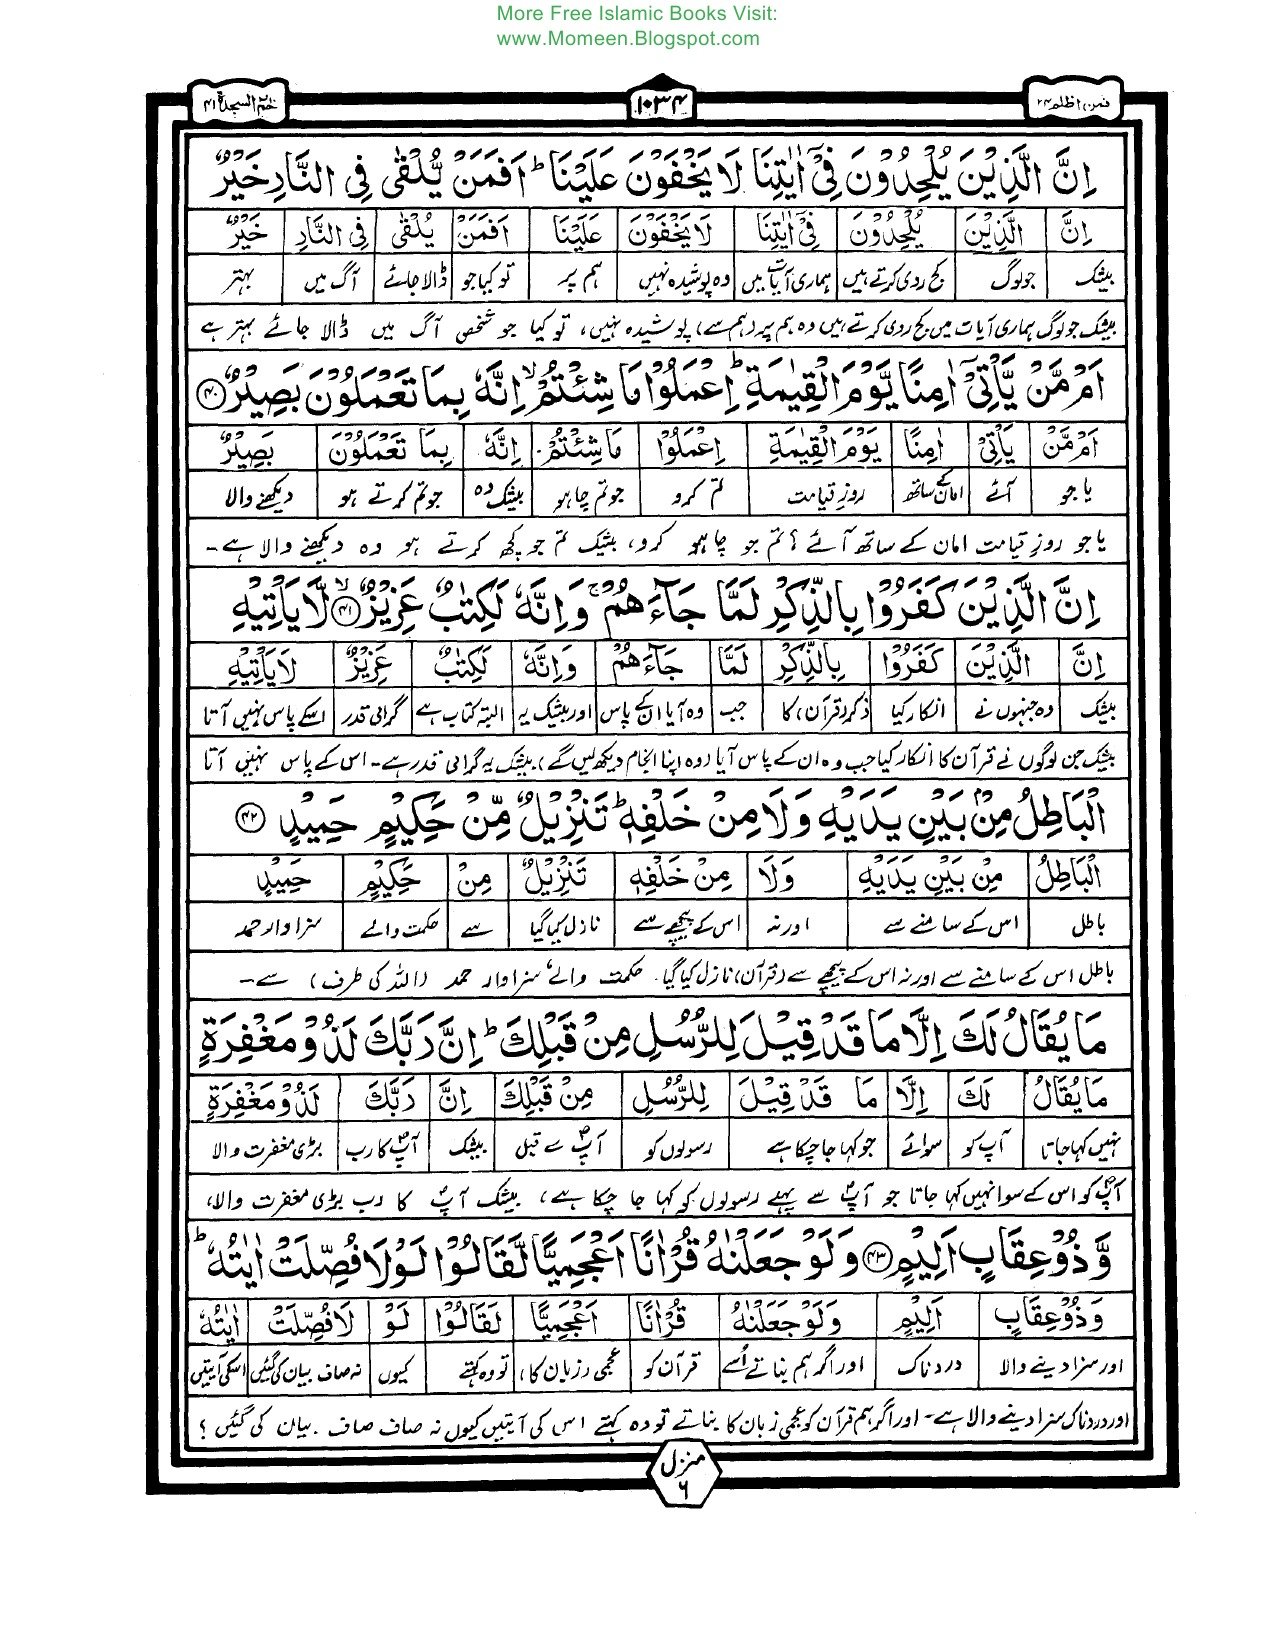 More Free Islamic Books Visit:
www.Momeen.Blogspot.com
فمن اظلم ۲۴
۱۰۳۴
حٰمٓ السجدۃ ۴۱
اِنَّ الَّذِیْنَ یُلْحِدُوْنَ فِیْۤ اٰیٰتِنَا لَا یَخْفَوْنَ عَلَیْنَا ؕ اَفَمَنْ یُّلْقٰی فِی النَّارِ خَیْرٌ
اِنَّ الَّذِیْنَ یُلْحِدُوْنَ فِیْۤ اٰیٰتِنَا لَا یَخْفَوْنَ عَلَیْنَا اَفَمَنْ یُلْقٰی فِی النَّارِ خَیْرٌ
بیشک جو لوگ کج روی کرتے ہیں ہماری آیات میں وہ پوشیدہ نہیں ہم پر تو کیا جو ڈالا جائے آگ میں بہتر
بیشک جو لوگ ہماری آیات میں کج روی کرتے ہیں وہ ہم پر (ہم سے) پوشیدہ نہیں، تو کیا جو شخص آگ میں ڈالا جائے بہتر ہے
اَمْ مَّنْ یَّاْتِیْۤ اٰمِنًا یَّوْمَ الْقِیٰمَةِ ؕ اِعْمَلُوْا مَا شِئْتُمْ ۙ اِنَّهٗ بِمَا تَعْمَلُوْنَ بَصِیْرٌ ۴۰
اَمْ مَّنْ یَاْتِیْۤ اٰمِنًا یَوْمَ الْقِیٰمَةِ اِعْمَلُوْا مَا شِئْتُمْ اِنَّهٗ بِمَا تَعْمَلُوْنَ بَصِیْرٌ
یا جو آئے امان کے ساتھ روزِ قیامت تم کرو جو تم چاہو بیشک وہ جو تم کرتے ہو دیکھنے والا
یا جو روزِ قیامت امان کے ساتھ آئے؟ تم جو چاہو کرو، بیشک تم جو کچھ کرتے ہو وہ دیکھنے والا ہے۔
اِنَّ الَّذِیْنَ كَفَرُوْا بِالذِّكْرِ لَمَّا جَآءَهُمْ ۚ وَ اِنَّهٗ لَكِتٰبٌ عَزِیْزٌ ۙ ۴۱ لَّا یَاْتِیْهِ
اِنَّ الَّذِیْنَ كَفَرُوْا بِالذِّكْرِ لَمَّا جَآءَهُمْ وَاِنَّهٗ لَكِتٰبٌ عَزِیْزٌ لَا یَاْتِیْهِ
بیشک وہ جنہوں نے انکار کیا ذکر (قرآن) کا جب وہ آیا ان کے پاس اور بیشک یہ البتہ کتاب ہے گرامی قدر اسکے پاس نہیں آتا
بیشک جن لوگوں نے قرآن کا انکار کیا جب وہ ان کے پاس آیا (وہ اپنا انجام دیکھ لیں گے) بیشک یہ گرامی قدر ہے۔ اس کے پاس نہیں آتا
الْبَاطِلُ مِنْۢ بَیْنِ یَدَیْهِ وَ لَا مِنْ خَلْفِهٖ ؕ تَنْزِیْلٌ مِّنْ حَكِیْمٍ حَمِیْدٍ ۴۲
الْبَاطِلُ مِنْ بَیْنِ یَدَیْهِ وَلَا مِنْ خَلْفِهٖ تَنْزِیْلٌ مِنْ حَكِیْمٍ حَمِیْدٍ
باطل اس کے سامنے سے اور نہ اس کے پیچھے سے نازل کیا گیا سے حکمت والے سزاوار حمد
باطل اس کے سامنے سے اور نہ اس کے پیچھے سے (قرآن) نازل کیا گیا۔ حکمت والے، سزاوار حمد (اللہ کی طرف) سے۔
مَا یُقَالُ لَكَ اِلَّا مَا قَدْ قِیْلَ لِلرُّسُلِ مِنْ قَبْلِكَ ؕ اِنَّ رَبَّكَ لَذُوْ مَغْفِرَةٍ
مَا یُقَالُ لَكَ اِلَّا مَا قَدْ قِیْلَ لِلرُّسُلِ مِنْ قَبْلِكَ اِنَّ رَبَّكَ لَذُوْ مَغْفِرَةٍ
نہیں کہا جاتا آپ کو سوائے جو کہا جا چکا ہے رسولوں کو آپؐ سے قبل بیشک آپؐ کا رب بڑی مغفرت والا
آپؐ کو اس کے سوا نہیں کہا جاتا جو آپؐ سے پہلے رسولوں کو کہا جا چکا ہے، بیشک آپؐ کا رب بڑی مغفرت والا،
وَّ ذُوْ عِقَابٍ اَلِیْمٍ ۴۳ وَ لَوْ جَعَلْنٰهُ قُرْاٰنًا اَعْجَمِیًّا لَّقَالُوْا لَوْ لَا فُصِّلَتْ اٰیٰتُهٗ ؕ
وَ ذُوْ عِقَابٍ اَلِیْمٍ وَلَوْ جَعَلْنٰهُ قُرْاٰنًا اَعْجَمِیًّا لَقَالُوْا لَوْ لَا فُصِّلَتْ اٰیٰتُهٗ
اور سزا دینے والا دردناک اور اگر ہم بناتے اُسے قرآن کو عجمی (زبان کا) تو وہ کہتے کیوں نہ صاف بیان کی گئیں اسکی آیتیں
اور دردناک سزا دینے والا ہے۔ اور اگر ہم قرآن کو عجمی زبان کا بناتے تو وہ کہتے اس کی آیتیں کیوں نہ صاف صاف بیان کی گئیں؟
منزل ۶